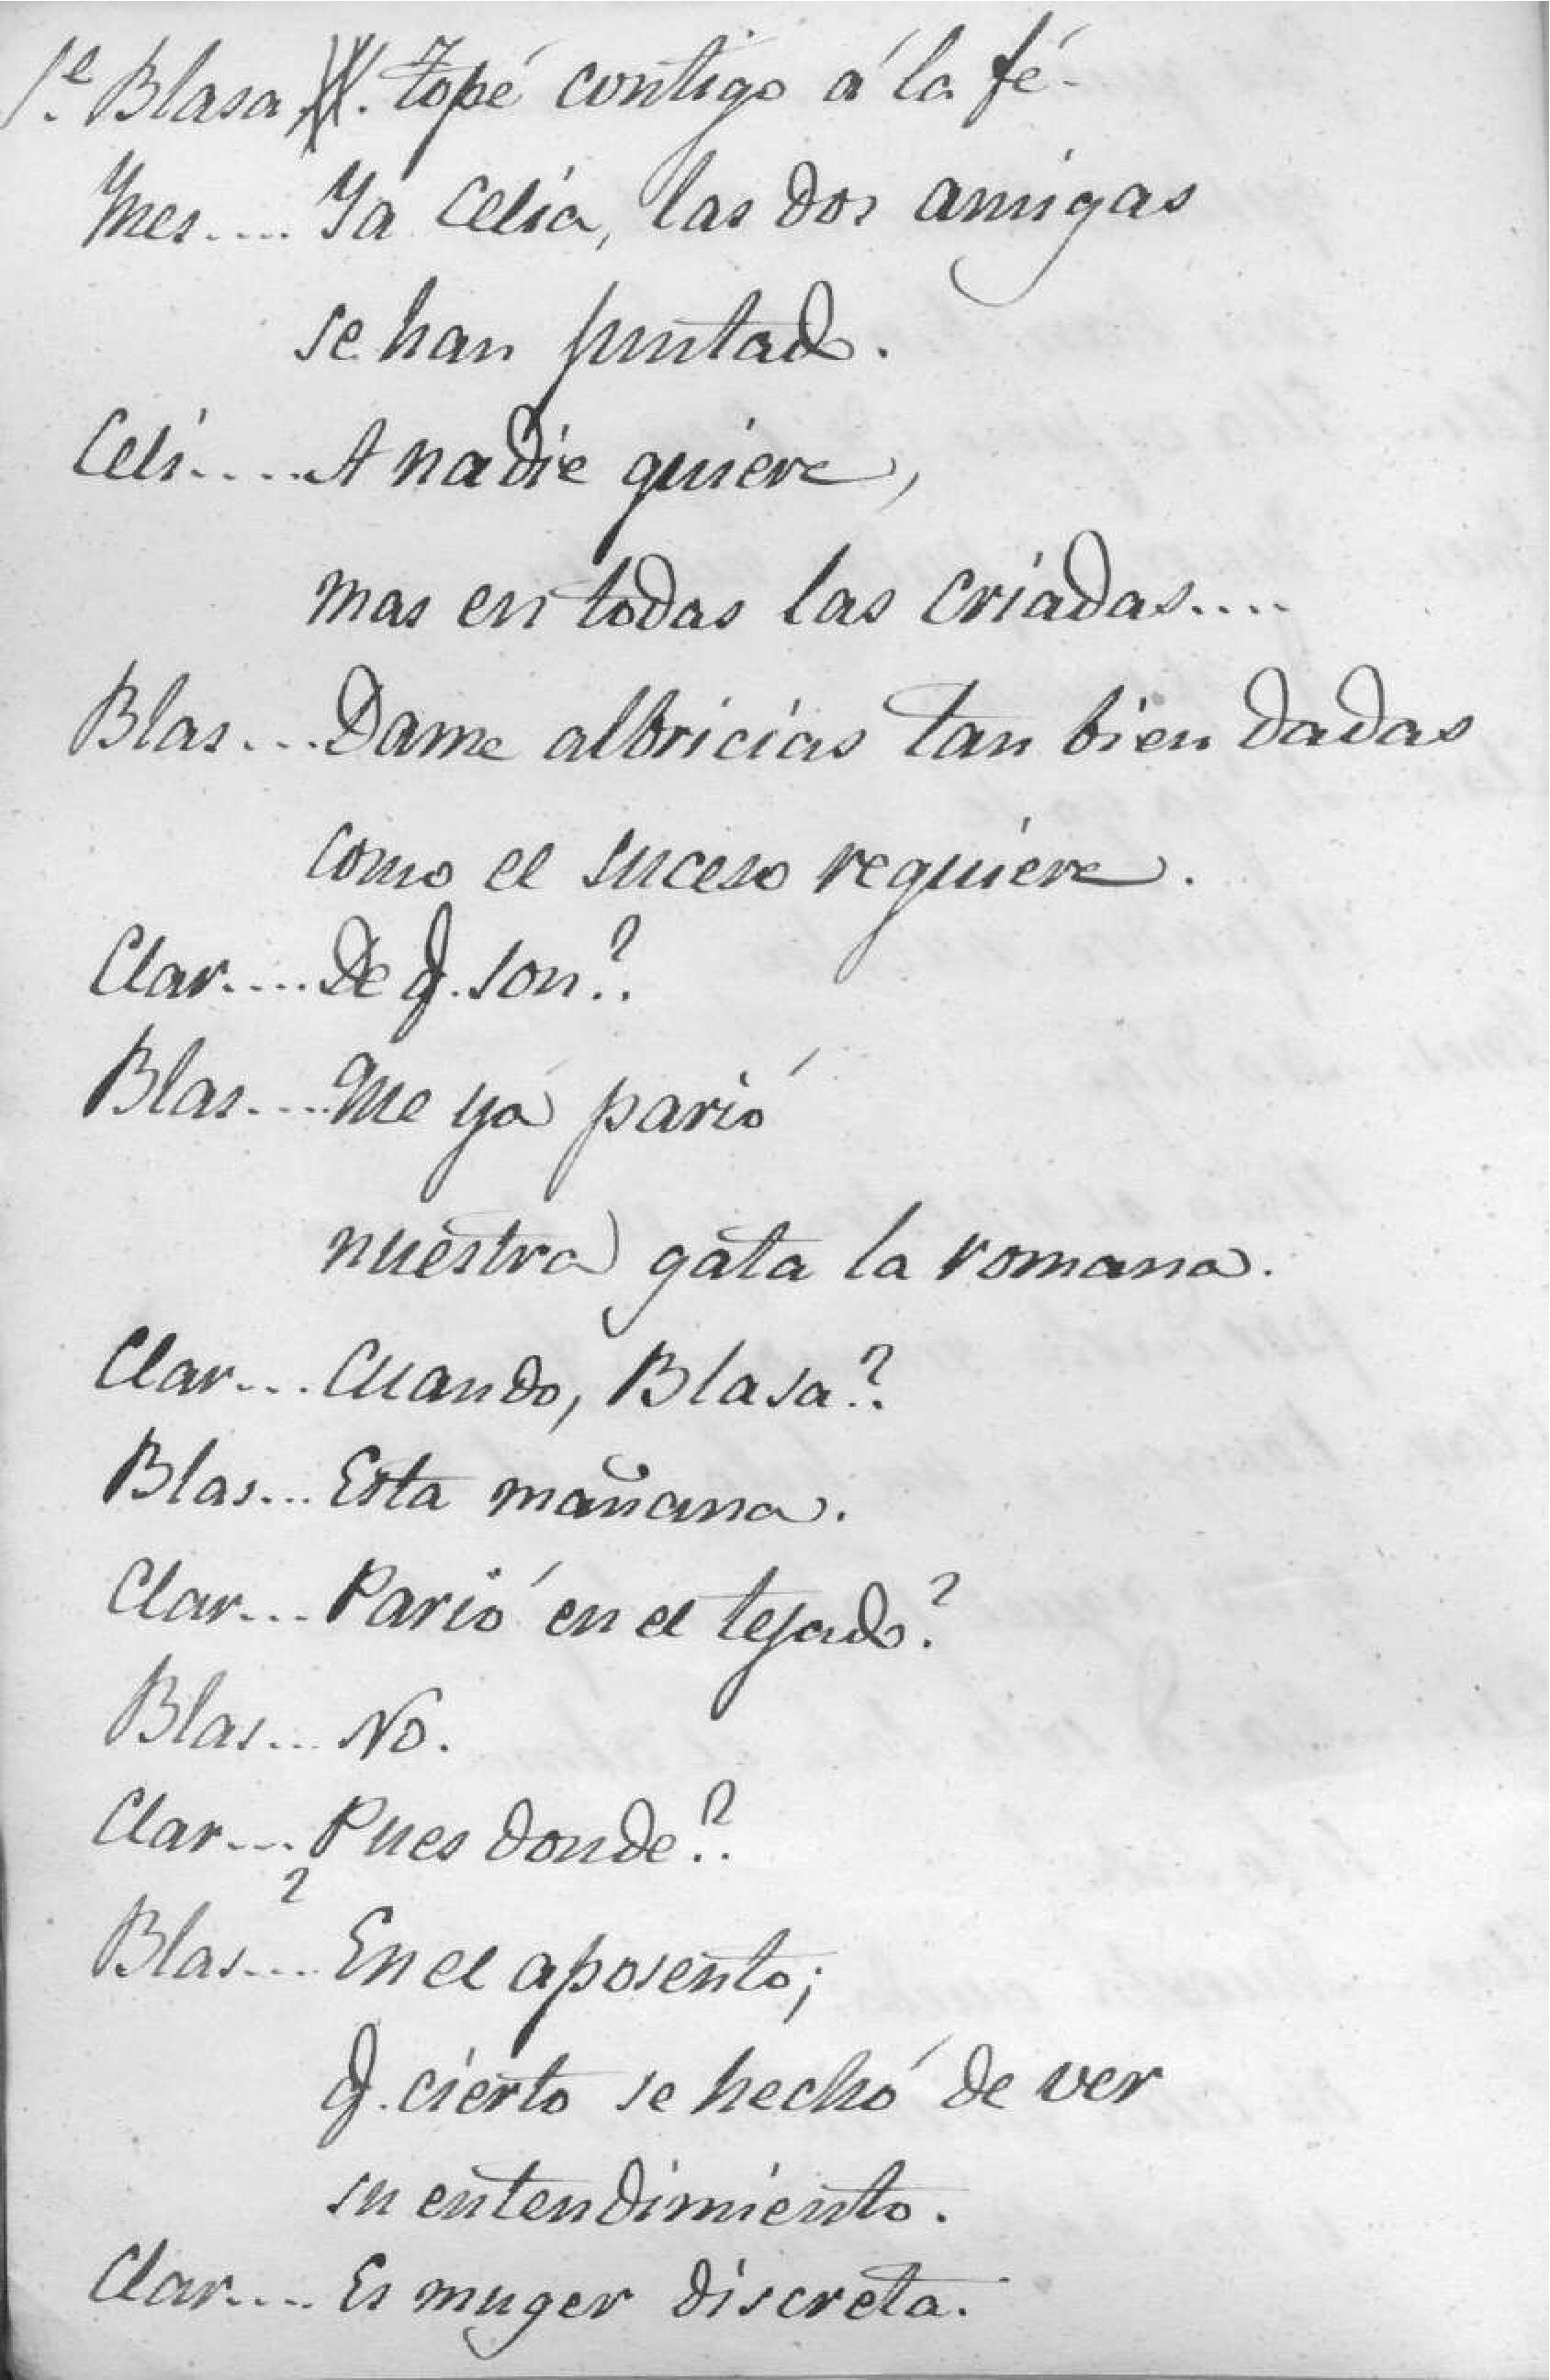 Se. Blasa. topé contigo á la fé.
Ynes.... Ya Celia, las dos amigas
se han juntado.
Celi..... A nadie quiere,
mas en todas las criadas....
Blas.... Dame albricias tan bien dadas
como el suceso requiere.
Clar..... De q. son?.
Blas.... Que ya parió
nuestra gata la romana.
Clar.... Cuando, Blasa?.
Blas... Esta mañana.
Clar... Parió en el tejado?
Blas... No.
Clar.... Pues donde?.
Blas.... En el aposento;
q. cierto se hechó de ver
su entendimiento.
Clar.... Es muger discreta.